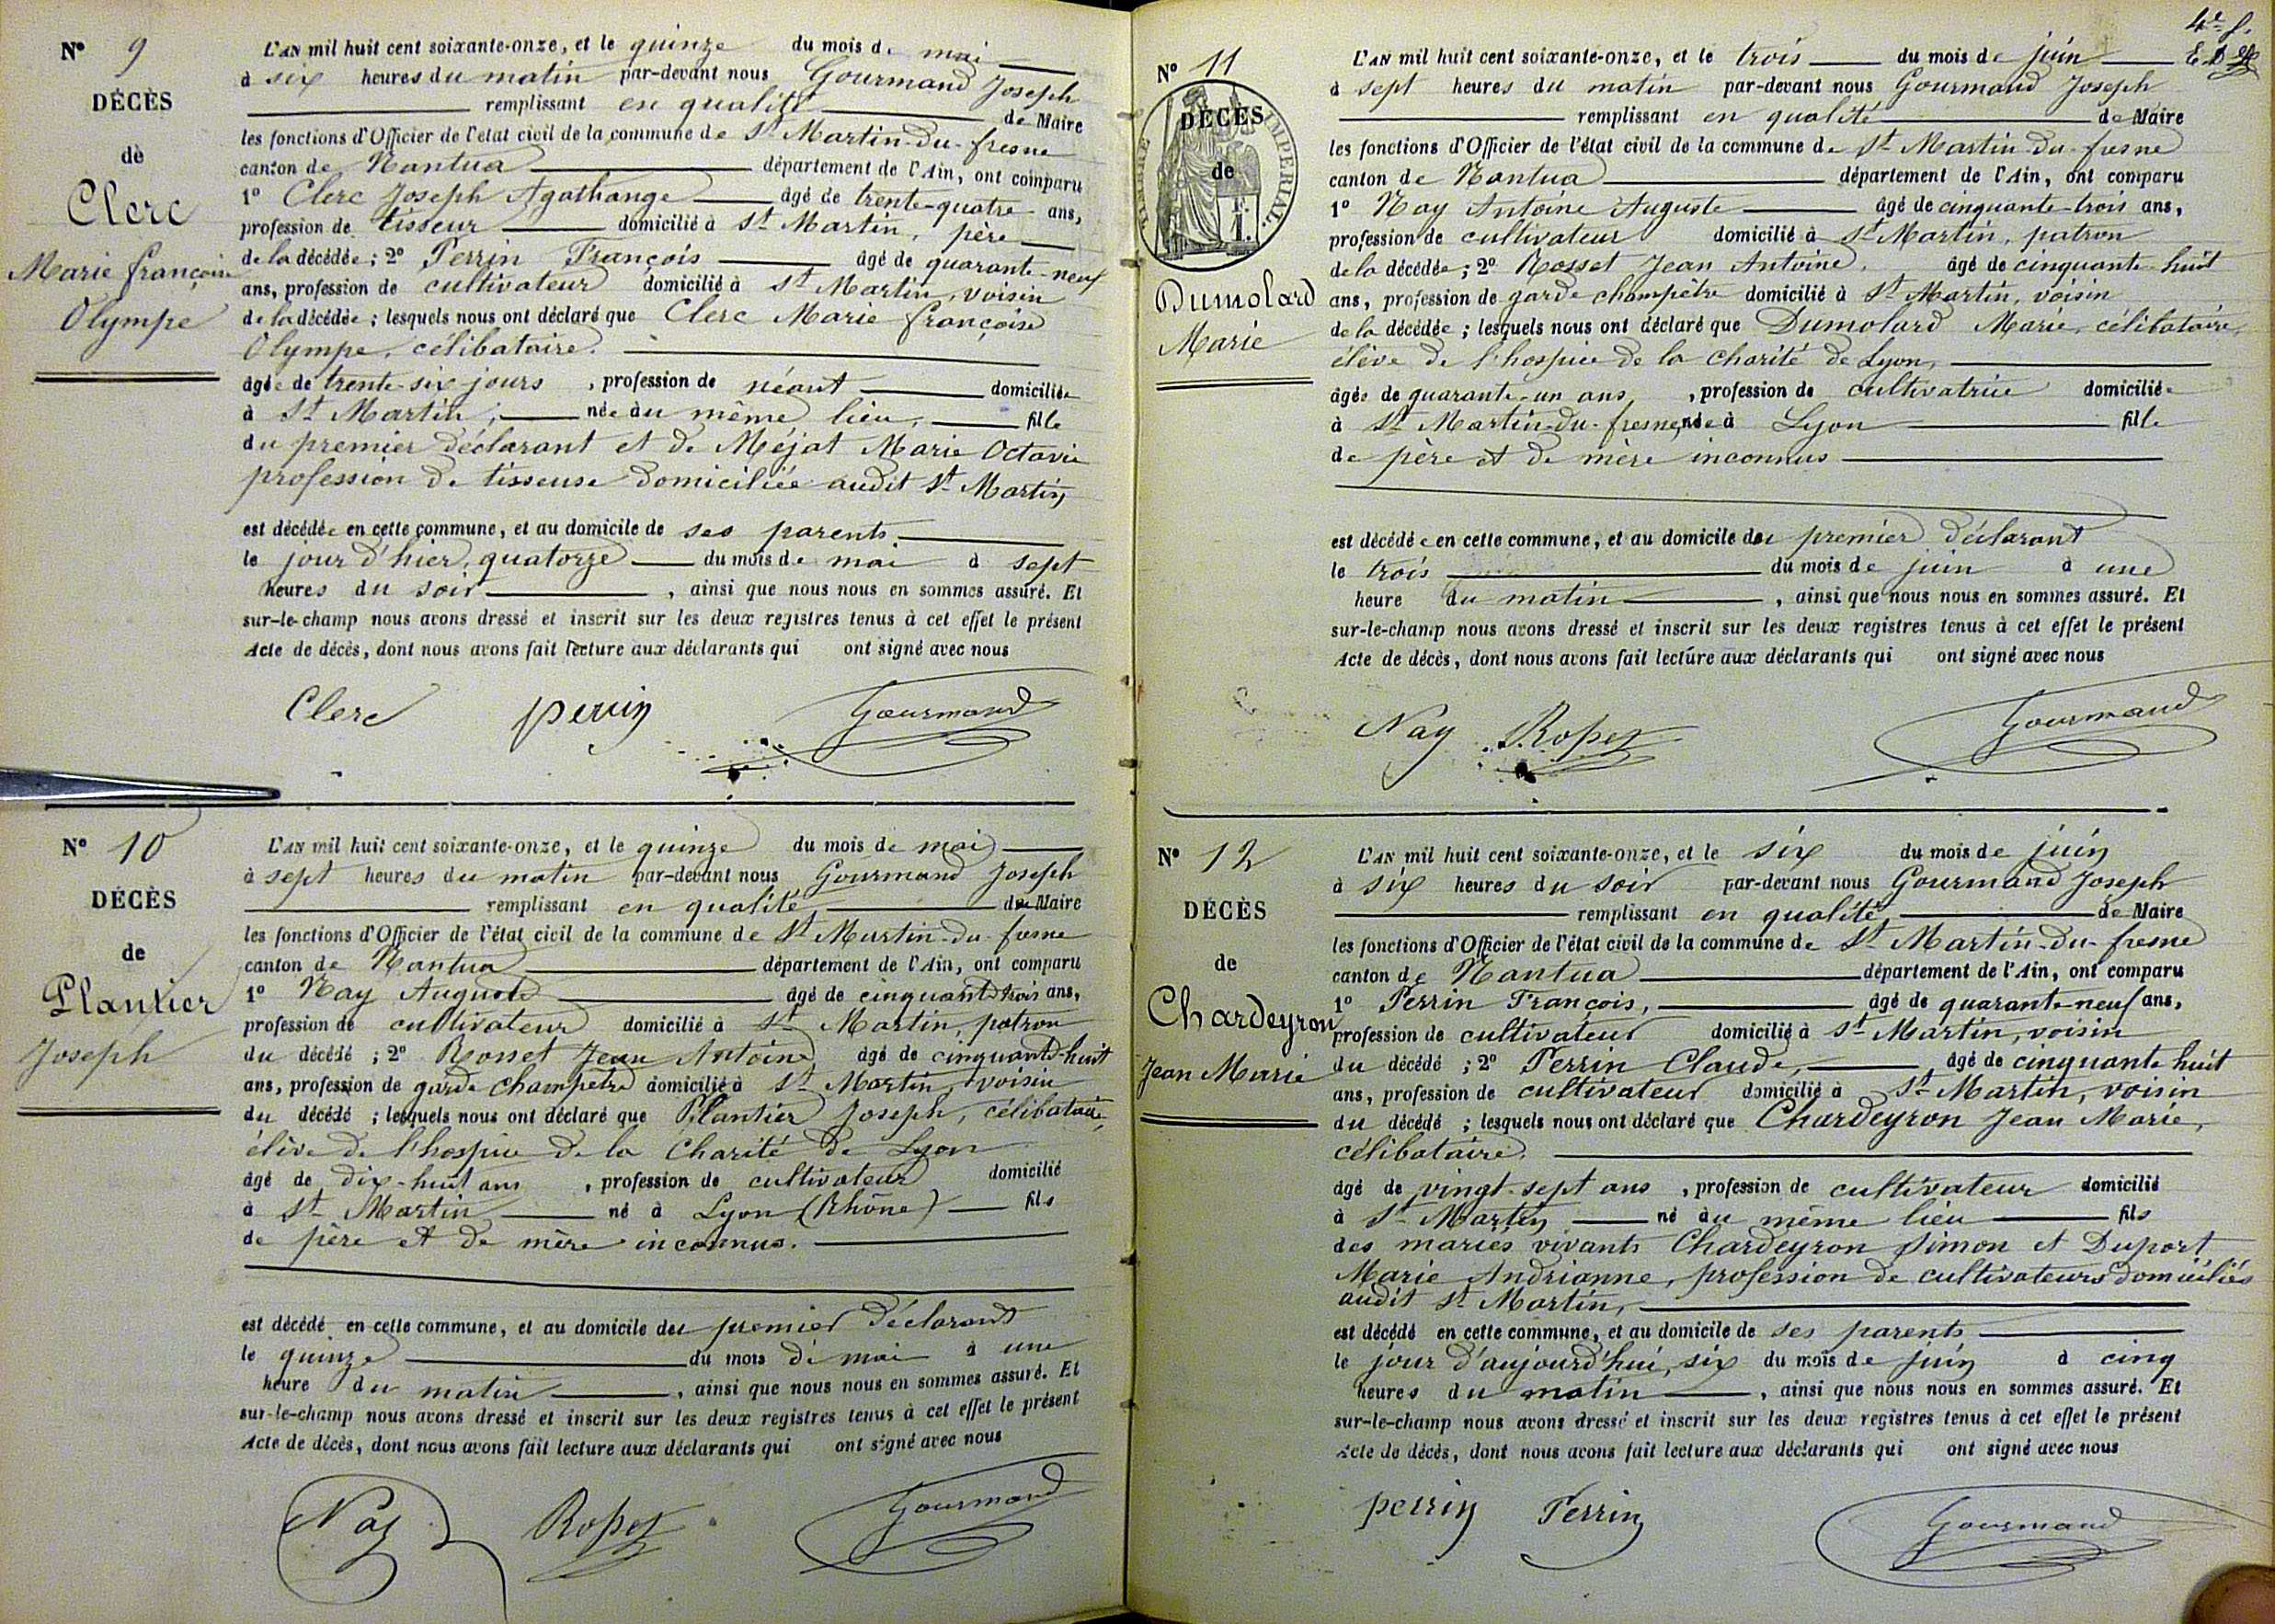 N° 9
DÉCÈS
de
Clerc
Marie françoise
Olympe
L'AN mil huit cent soixante-onze, et le quinze du mois de mai
à six heures du matin par-devant nous Gourmand Joseph
remplissant en qualité de Maire
les fonctions d'Officier de l'état civil de la commune de St Martin-du-fresne
canton de Nantua département de l'Ain, ont comparu
1° Clerc Joseph Agathange âgé de trente-quatre ans,
profession de tisseur domicilié à St Martin, père
de la décédée ; 2° Perrin François âgé de quarante-neuf
ans, profession de cultivateur domicilié à St Martin, voisin
de la décédée ; lesquels nous ont déclaré que Clerc Marie françoise
Olympe, célibataire.
âgée de trente-six jours , profession de néant domiciliée
à St Martin, née au même lieu, fille
du premier déclarant et de Méjat Marie Octavie
profession de tisseuse domiciliée audit St Martin
est décédée en cette commune, et au domicile de ses parents
le jour d'hier, quatorze du mois de mai à sept
heures du soir , ainsi que nous nous en sommes assuré. Et
sur-le-champ nous avons dressé et inscrit sur les deux registres tenus à cet effet le présent
Acte de décès, dont nous avons fait lecture aux déclarants qui ont signé avec nous
Clerc perrin Gourmand
N° 10
DÉCÈS
de
Plantier
Joseph
L'AN mil huit cent soixante-onze, et le quinze du mois de mai
à sept heures du matin par-devant nous Gourmand Joseph
remplissant en qualité de Maire
les fonctions d'Officier de l'état civil de la commune de St Martin-du-fresne
canton de Nantua département de l'Ain, ont comparu
1° Nay Auguste âgé de cinquante trois ans,
profession de cultivateur domicilié à St Martin, patron
du décédé ; 2° Rosset Jean Antoine âgé de cinquante-huit
ans, profession de garde champêtre domicilié à St Martin, voisin
du décédé ; lesquels nous ont déclaré que Plantier Joseph, célibataire,
élève de l'hospice de la Charité de Lyon
âgé de dix-huit ans , profession de cultivateur domicilié
à St Martin né à Lyon (Rhône) fils
de père et de mère inconnus.
est décédé en cette commune, et au domicile du premier déclarant
le quinze du mois de mai à une
heure du matin , ainsi que nous nous en sommes assuré. Et
sur-le-champ nous avons dressé et inscrit sur les deux registres tenus à cet effet le présent
Acte de décès, dont nous avons fait lecture aux déclarants qui ont signé avec nous
Nay Rosset Gourmand
4e f.
N° 11
DÉCÈS
de
TIMBRE IMPÉRIAL.
1F.
Dumolard
Marie
L'AN mil huit cent soixante-onze, et le trois du mois de juin
à sept heures du matin par-devant nous Gourmand Joseph
remplissant en qualité de Maire
les fonctions d'Officier de l'état civil de la commune de St Martin-du-fresne
canton de Nantua département de l'Ain, ont comparu
1° Nay Antoine Auguste âgé de cinquante-trois ans,
profession de cultivateur domicilié à St Martin, patron
de la décédée ; 2° Rosset Jean Antoine, âgé de cinquante-huit
ans, profession de garde champêtre domicilié à St Martin, voisin
de la décédée ; lesquels nous ont déclaré que Dumolard Marie, célibataire,
élève de l'hospice de la charité de Lyon,
âgée de quarante-un ans, , profession de cultivatrice domiciliée
à St Martin-du-fresne, née à Lyon fille
de père et de mère inconnus
est décédée en cette commune, et au domicile du premier déclarant
le trois du mois de juin à une
heure du matin , ainsi que nous nous en sommes assuré. Et
sur-le-champ nous avons dressé et inscrit sur les deux registres tenus à cet effet le présent
Acte de décès, dont nous avons fait lecture aux déclarants qui ont signé avec nous
Nay Rosset Gourmand
N° 12
DÉCÈS
de
Chardeyron
Jean Marie
L'AN mil huit cent soixante-onze, et le six du mois de juin
à six heures du soir par-devant nous Gourmand Joseph
remplissant en qualité de Maire
les fonctions d'Officier de l'état civil de la commune de St Martin-du-fresne
canton de Nantua département de l'Ain, ont comparu
1° Perrin François, âgé de quarante-neuf ans,
profession de cultivateur domicilié à St Martin, voisin
du décédé ; 2° Perrin Claude, âgé de cinquante huit
ans, profession de cultivateur domicilié à St Martin, voisin
du décédé ; lesquels nous ont déclaré que Chardeyron Jean Marie,
célibataire.
âgé de vingt-sept ans , profession de cultivateur domicilié
à St Martin né au même lieu fils
des mariés vivants Chardeyron Simon et Duport
Marie Andrianne, profession de cultivateurs domiciliés
audit St Martin,
est décédé en cette commune, et au domicile de ses parents
le jour d'aujourd'hui, six du mois de juin à cinq
heures du matin , ainsi que nous nous en sommes assuré. Et
sur-le-champ nous avons dressé et inscrit sur les deux registres tenus à cet effet le présent
Acte de décès, dont nous avons fait lecture aux déclarants qui ont signé avec nous
perrin Perrin Gourmand